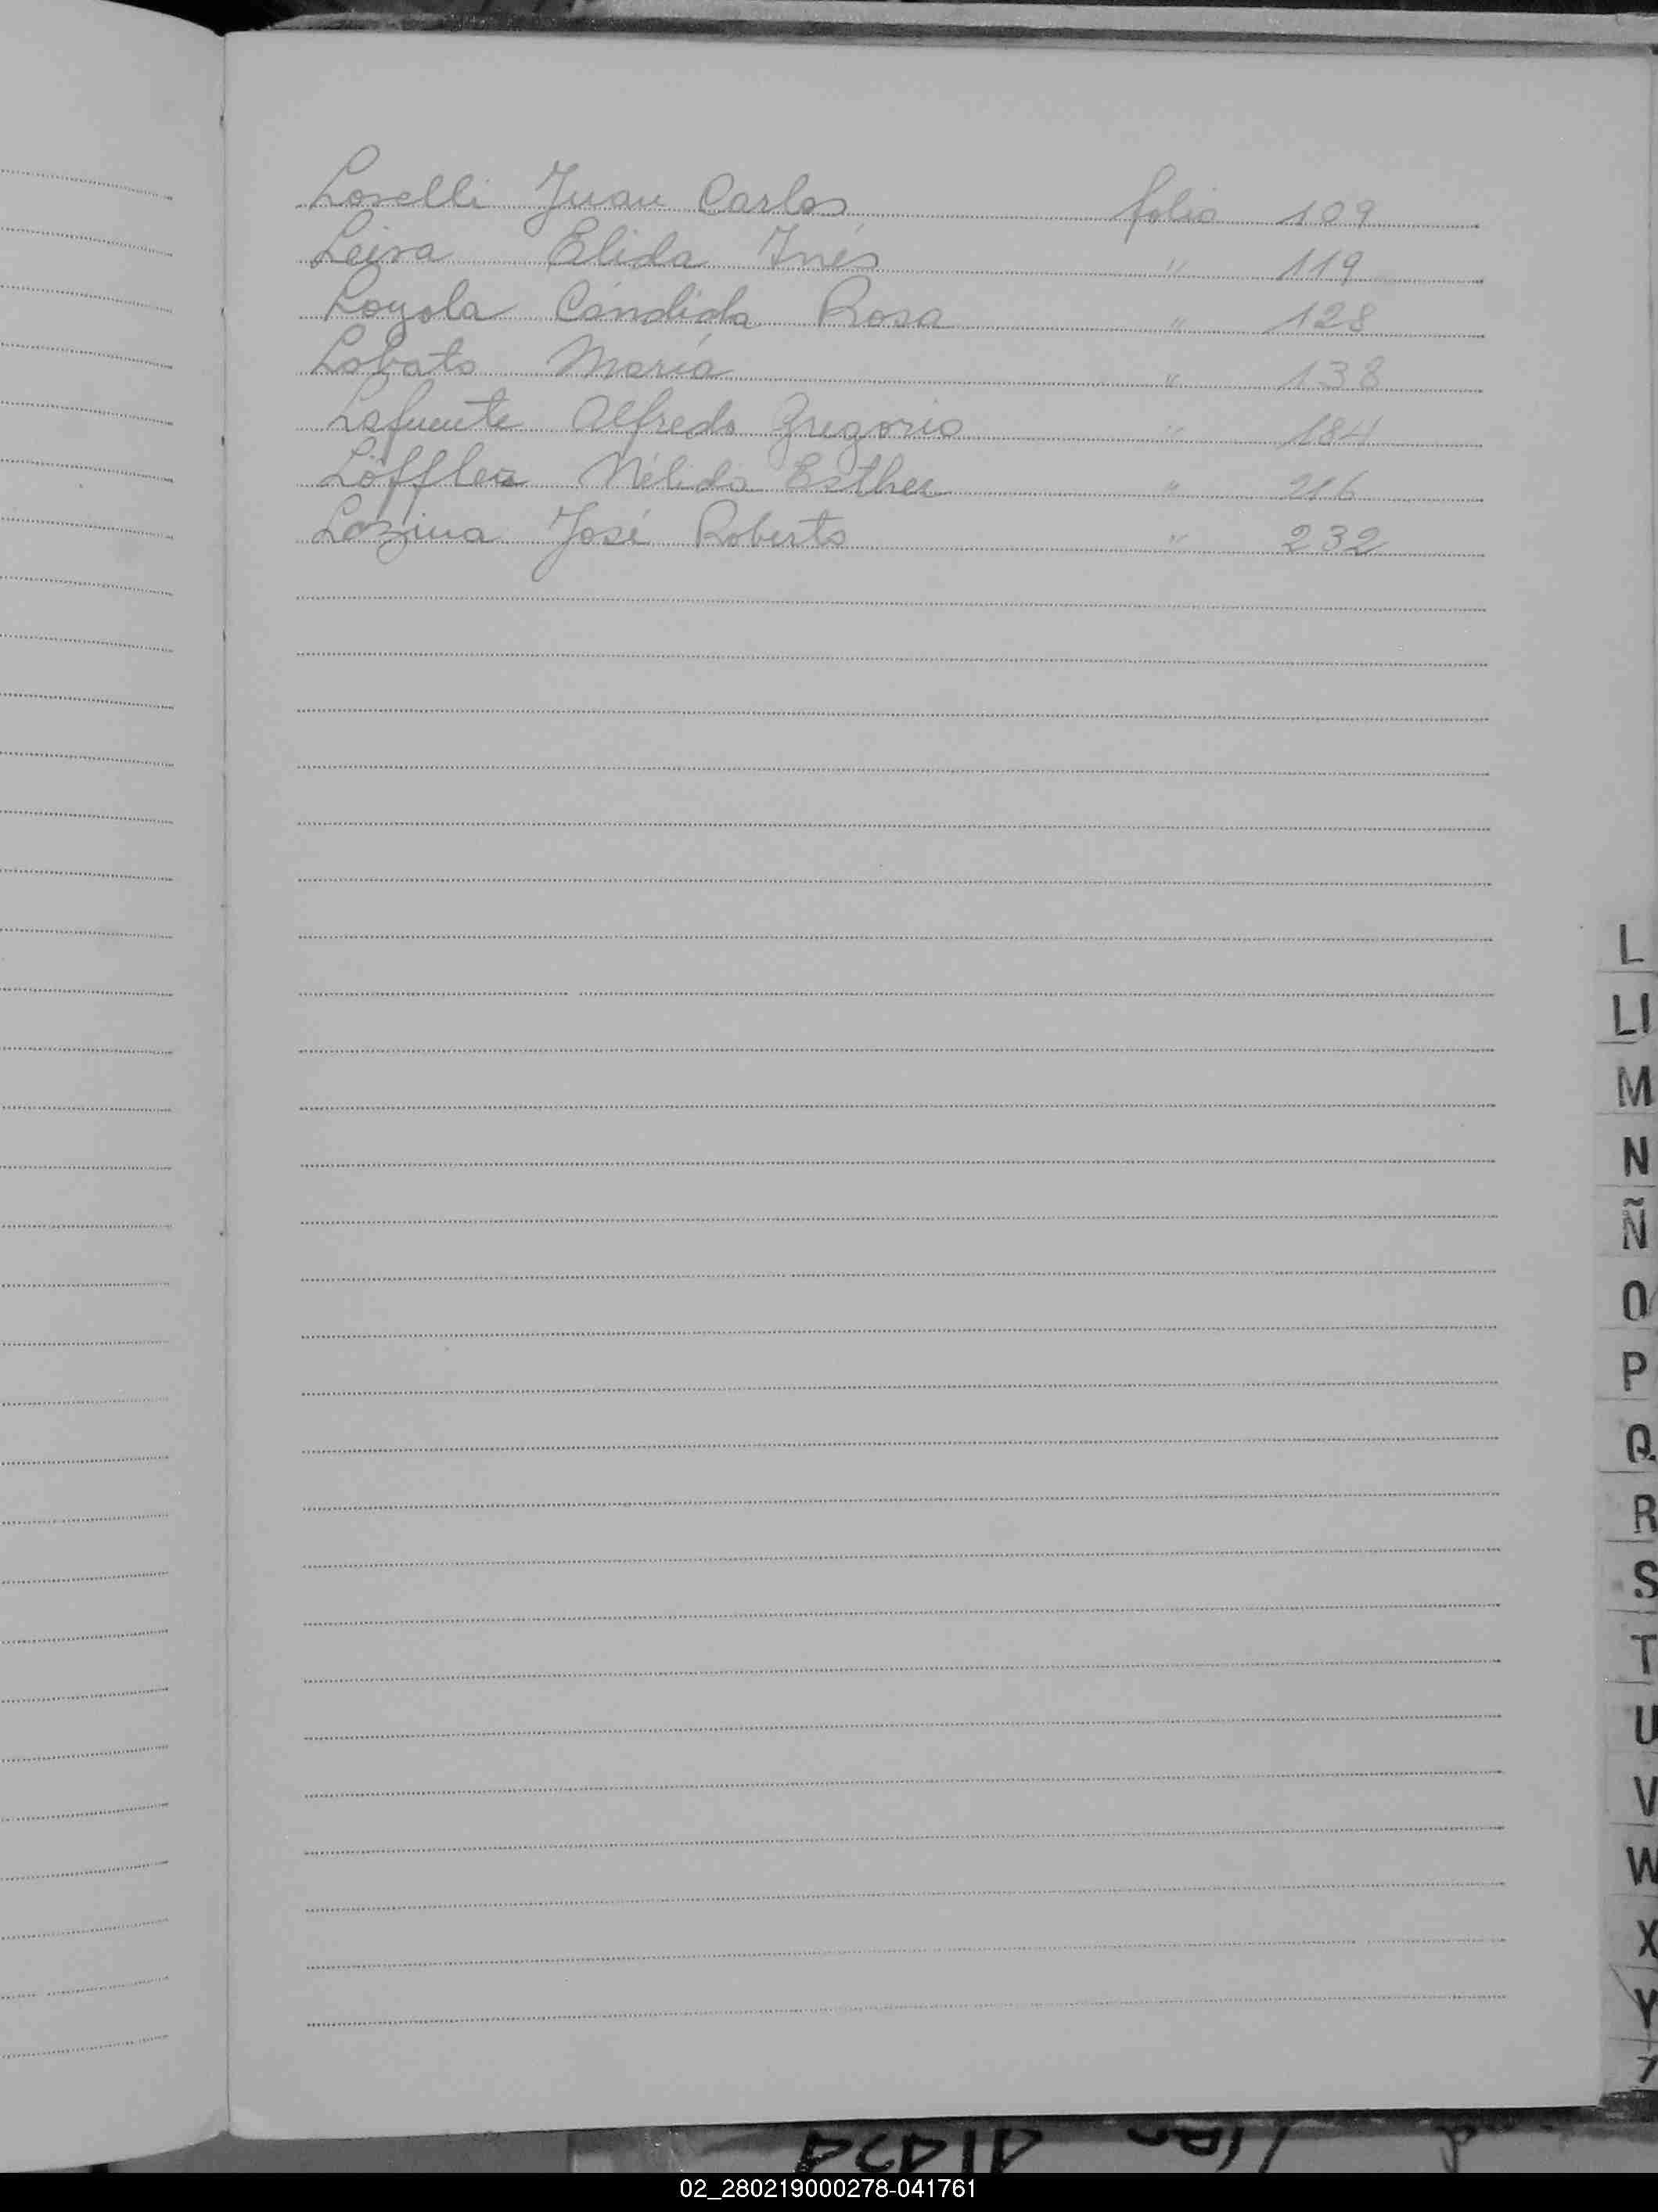 Lovelli Juan Carlos folio 109
Leiva Elida Inés " 119
Loyola Cándida Rosa " 128
Lobato María " 138
Lafuente Alfredo Gregorio " 184
Löffler Nélida Esther " 216
Lazina José Roberto " 232
L
Ll
M
N
Ñ
O
P
Q
R
S
T
U
V
W
X
Y
Z
02_280219000278-041761